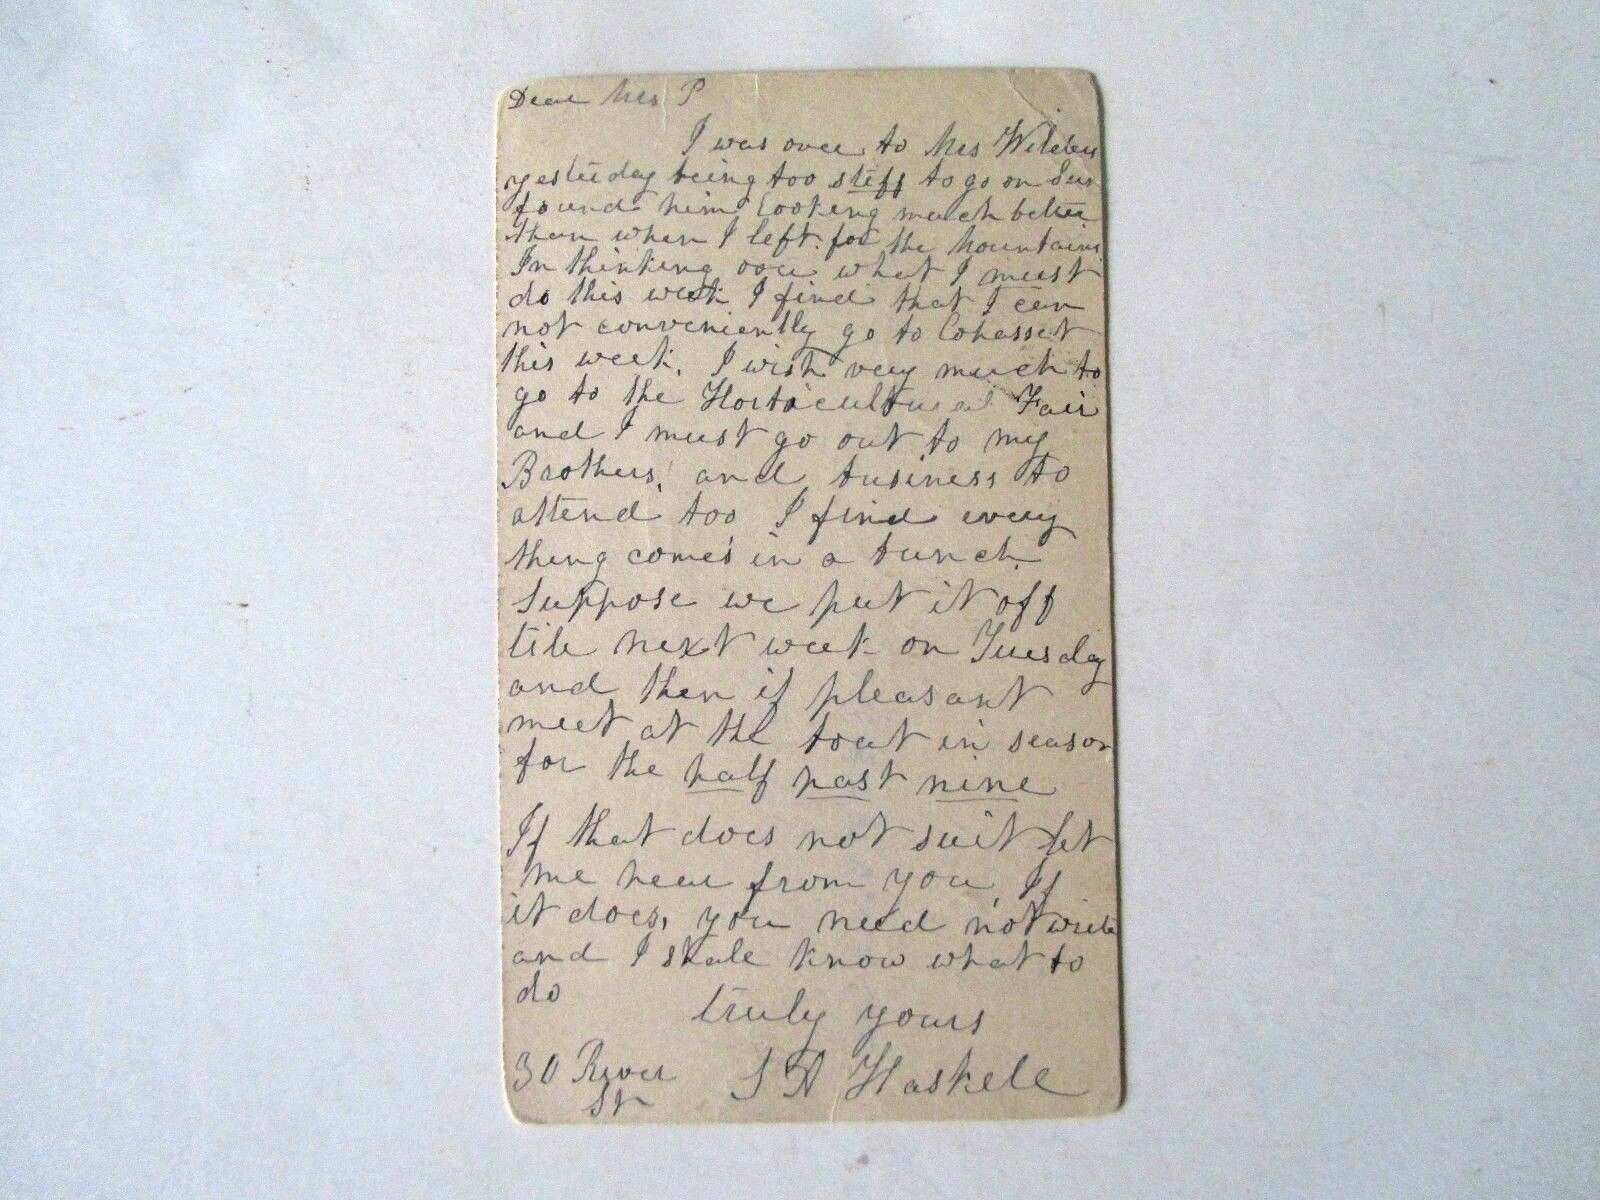 Dear Mrs P
I was over to Mrs
yesterday being too stiff to go on Sun
found him looking much better
than when I left for the Mountains
In thinking over what I must
do this week I find that I can
not conveniently go to Cohasset
this week. I wish very much to
go to the Horticultural Fair
and I must go out to my
Brothers, and business to
attend too I find every
thing comes in a bunch
Suppose we put it off
till next week on Tuesday
and then if pleasant
meet at the boat in season
for the half past nine
If that does not suit let
me hear from you If
it does, you need not write
and I shall know what to
do
truly yours
30 River S A Haskell
St